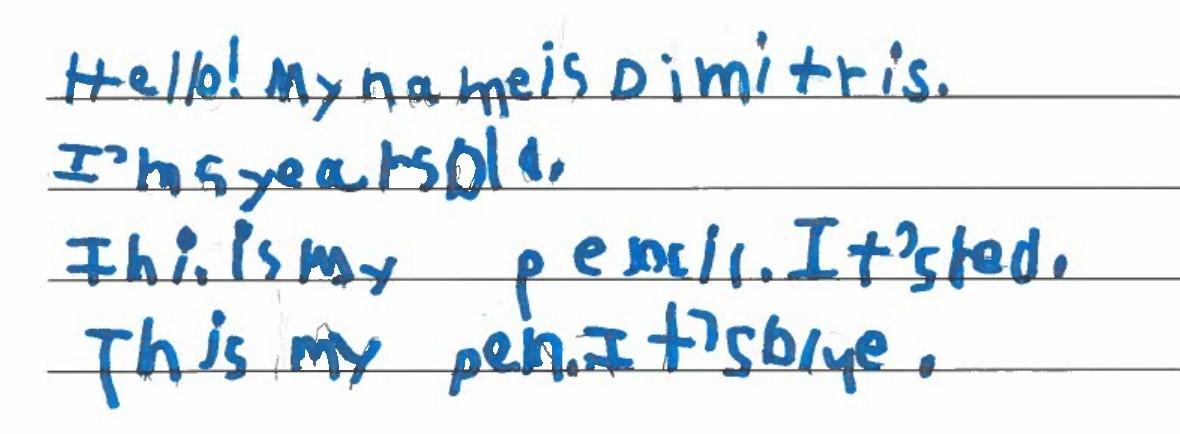 Hello! My name is Dimitris.
I'm 5 years old.
Thi. is my pencil. It's red.
This my pen. It's blue.